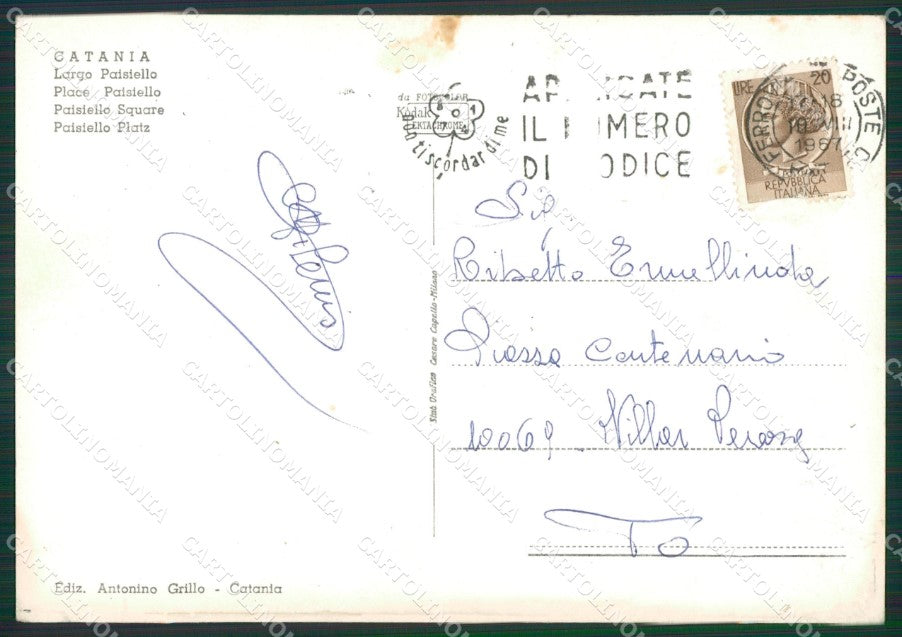 CATANIA
Largo Paisiello
Place Paisiello
Paisiello Square
Paisiello Platz
da FOTOCOLAR
Kodak
EKTACHROME
non ti scordar di me
AP ICATE
IL N MERO
DI ODICE
LIRE 20
POSTE
FERROVIA
1967
REPVBBLICA
ITALIANA
Sig
Ribetto Ermellinda
Piazza Centenario
10069 Villar Perosa
To
Stab. Grafico Cesare Capello-Milano
Ediz. Antonino Grillo - Catania
CARTOLINOMANIA